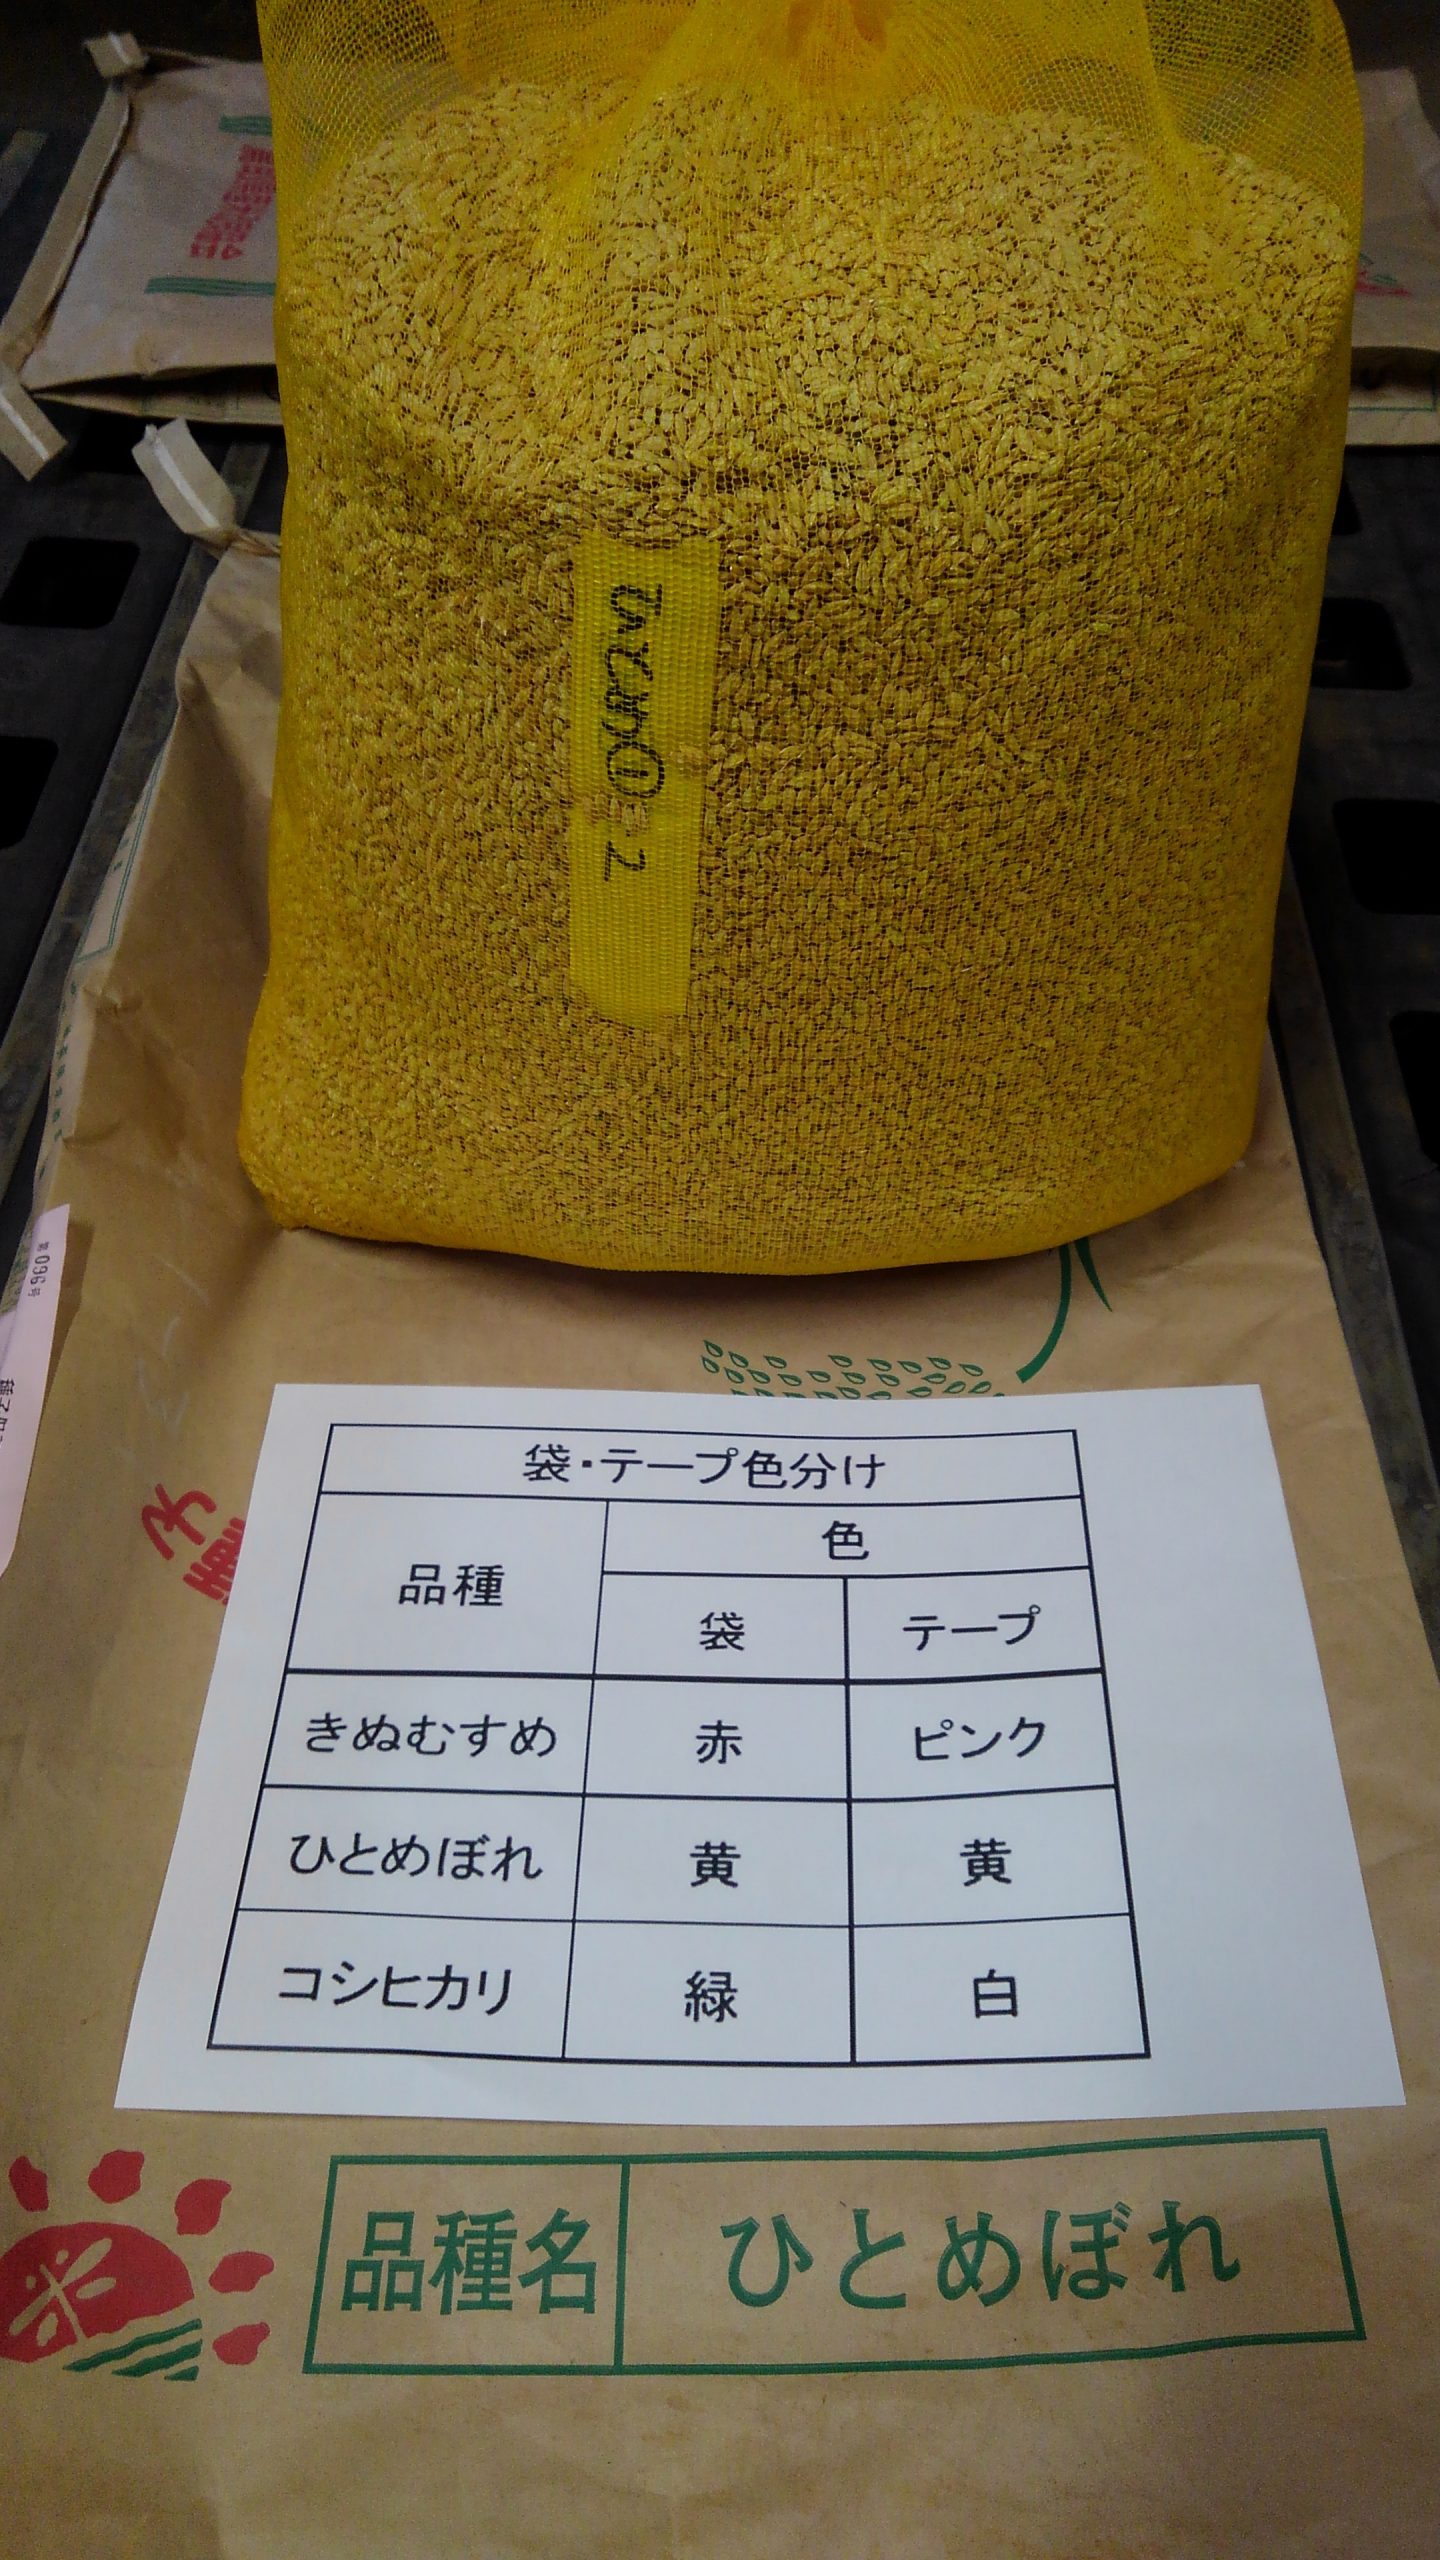 ひとめ① 2
第096号
袋・テープ色分け
品種
色
袋
テープ
きぬむすめ
赤
ピンク
ひとめぼれ
黄
黄
コシヒカリ
緑
白
品種名
ひとめぼれ